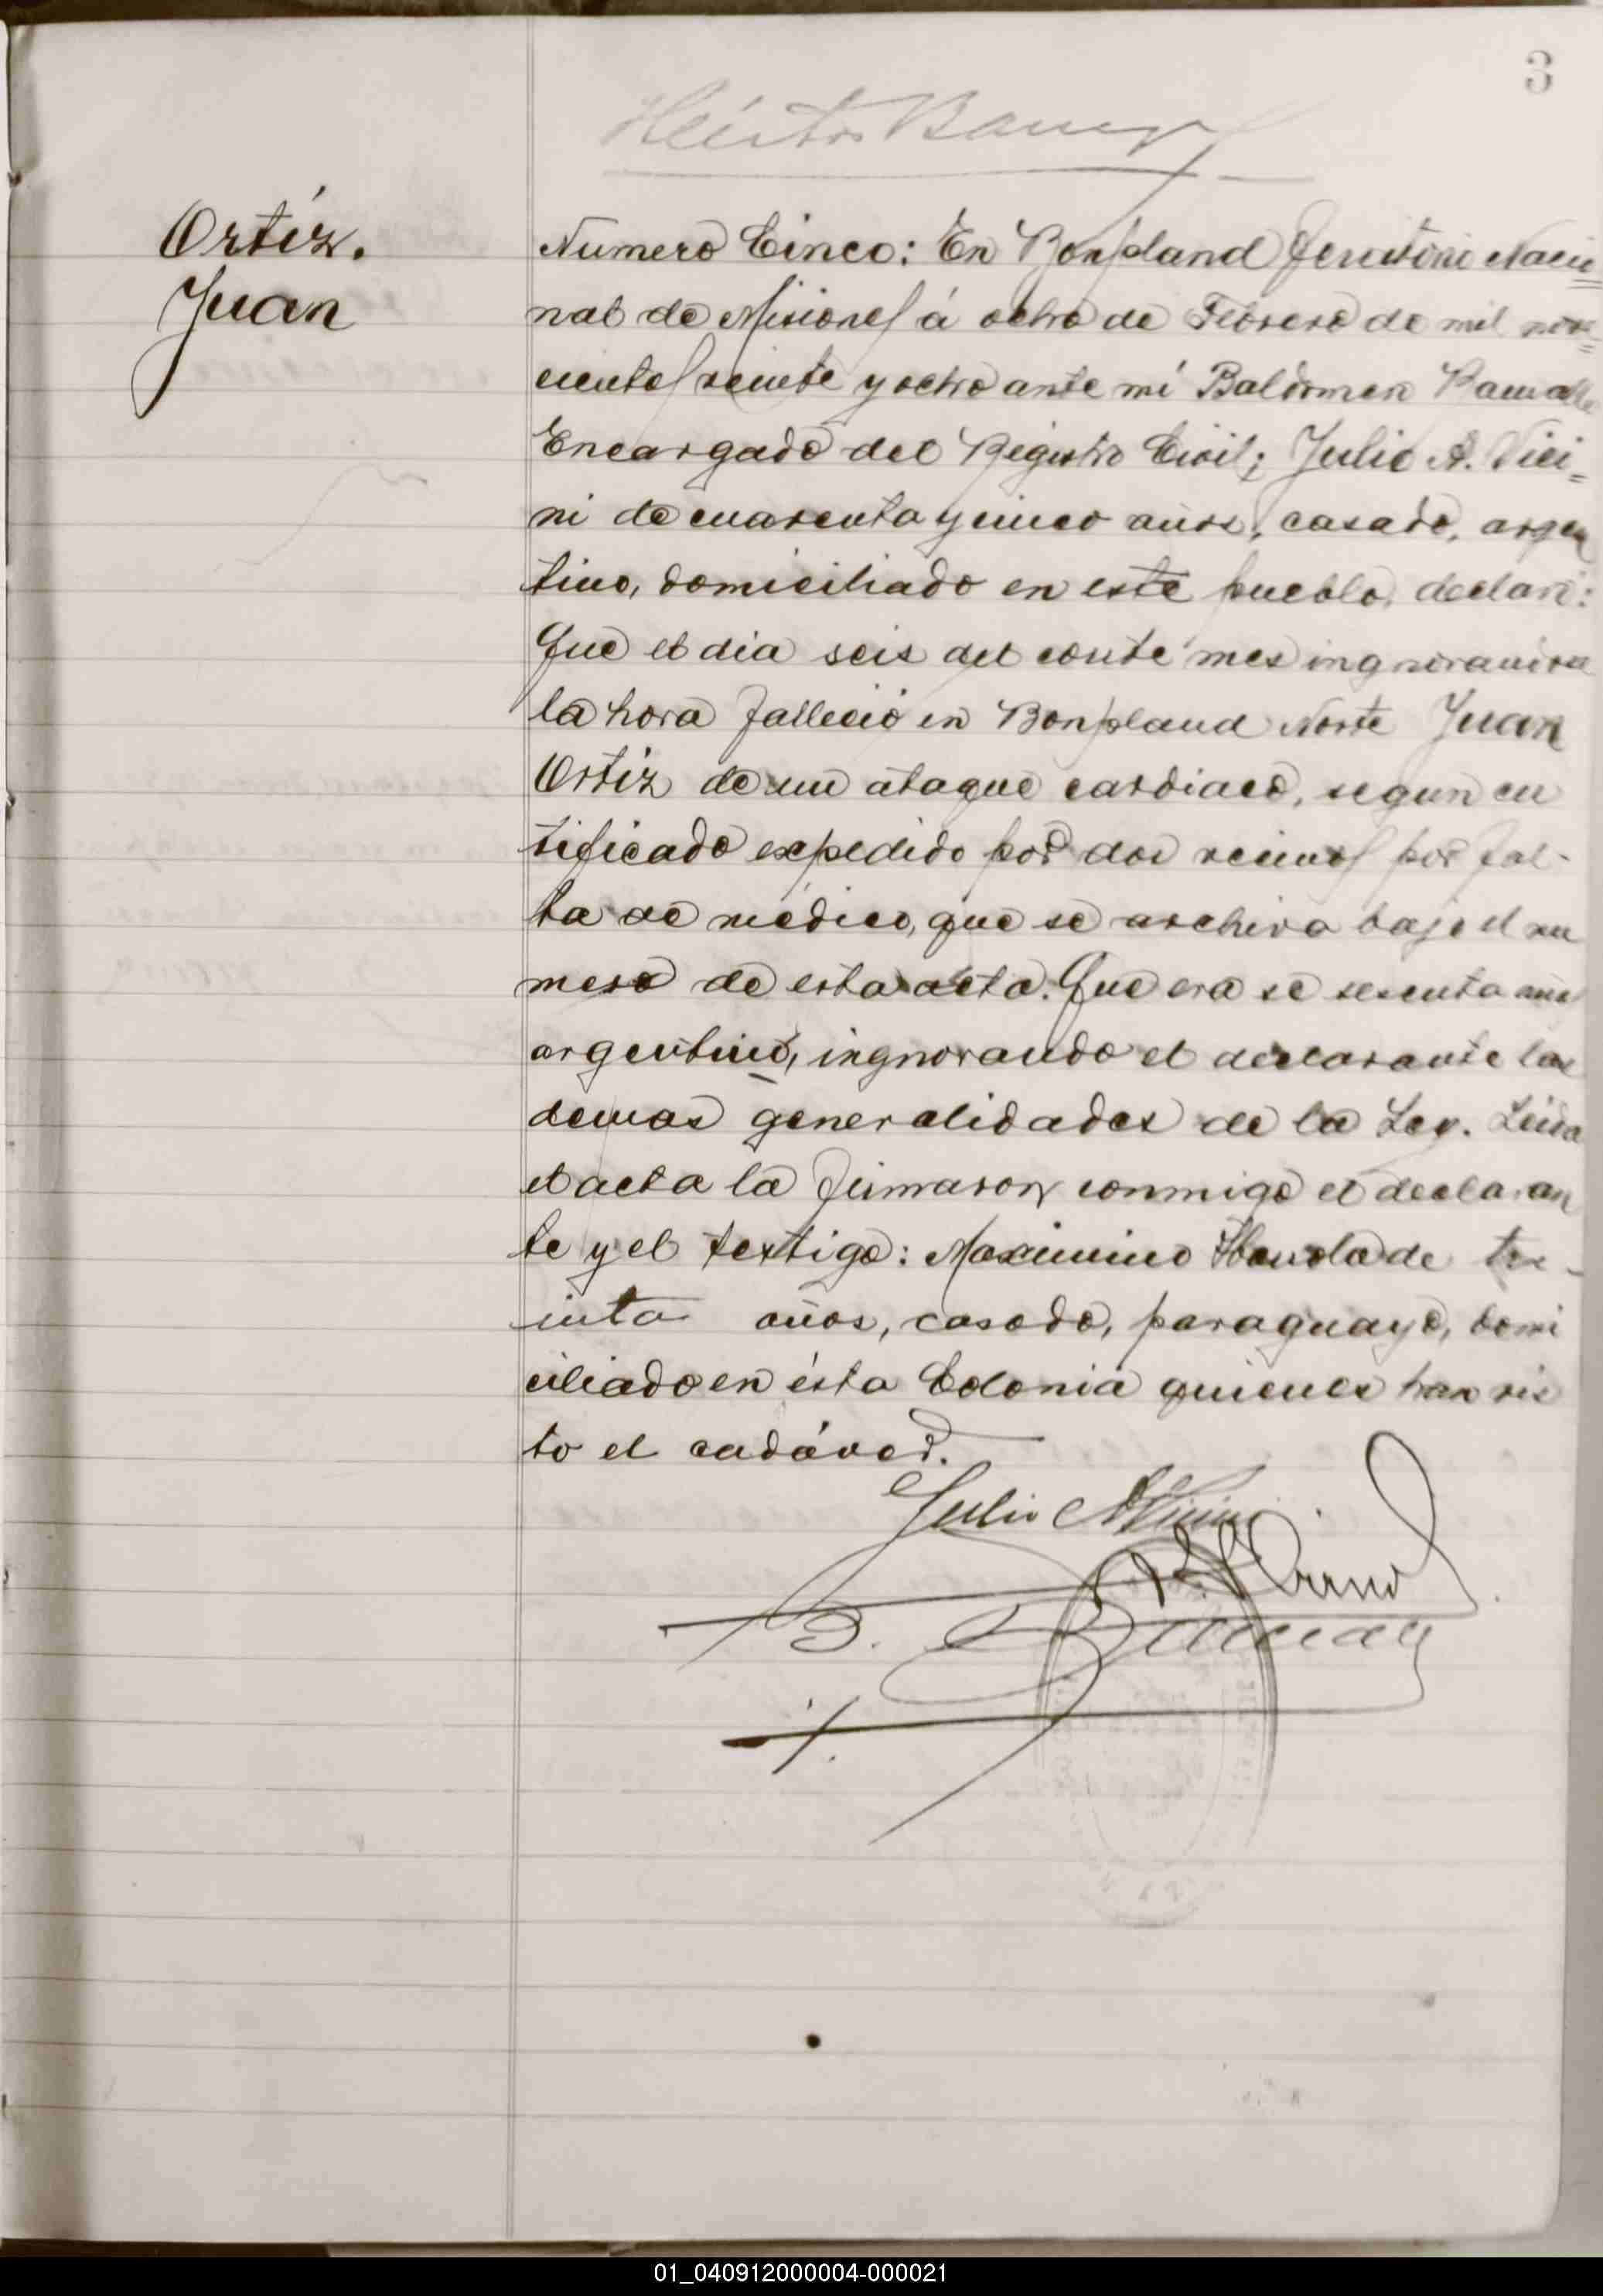 3
Ortíz.
Juan
Numero Cinco: En Bonpland Territorio Nacio=
nal de Misiones á ocho de Febrero de mil nove=
cientos veinte y ocho ante mí Baldomero
Encargado del Registro Civil; Julio A. Vici=
ni de cuarenta y cinco años, casado, argen
tino, domiciliado en este pueblo, declaró:
Que el dia seis del corrte mes ingnorandose
la hora falleció en Bonpland Norte Juan
Ortiz de un ataque cardiaco, segun cer
tificado expedido por dos vecinos por fal-
ta de médico, que se archiva bajo el nu
mero de esta acta. Que era se sesenta años
argentino, ingnorando el declarante las
demas generalidades de la Ley. Leida
el acta la firmaron conmigo el declaran
te y el testigo: Maximino de tre-
inta años, casado, paraguayo, domi
ciliado en ésta Colonia quienes han vis
to el cadáver.
Julio A Vicini
B.
01_040912000004-000021